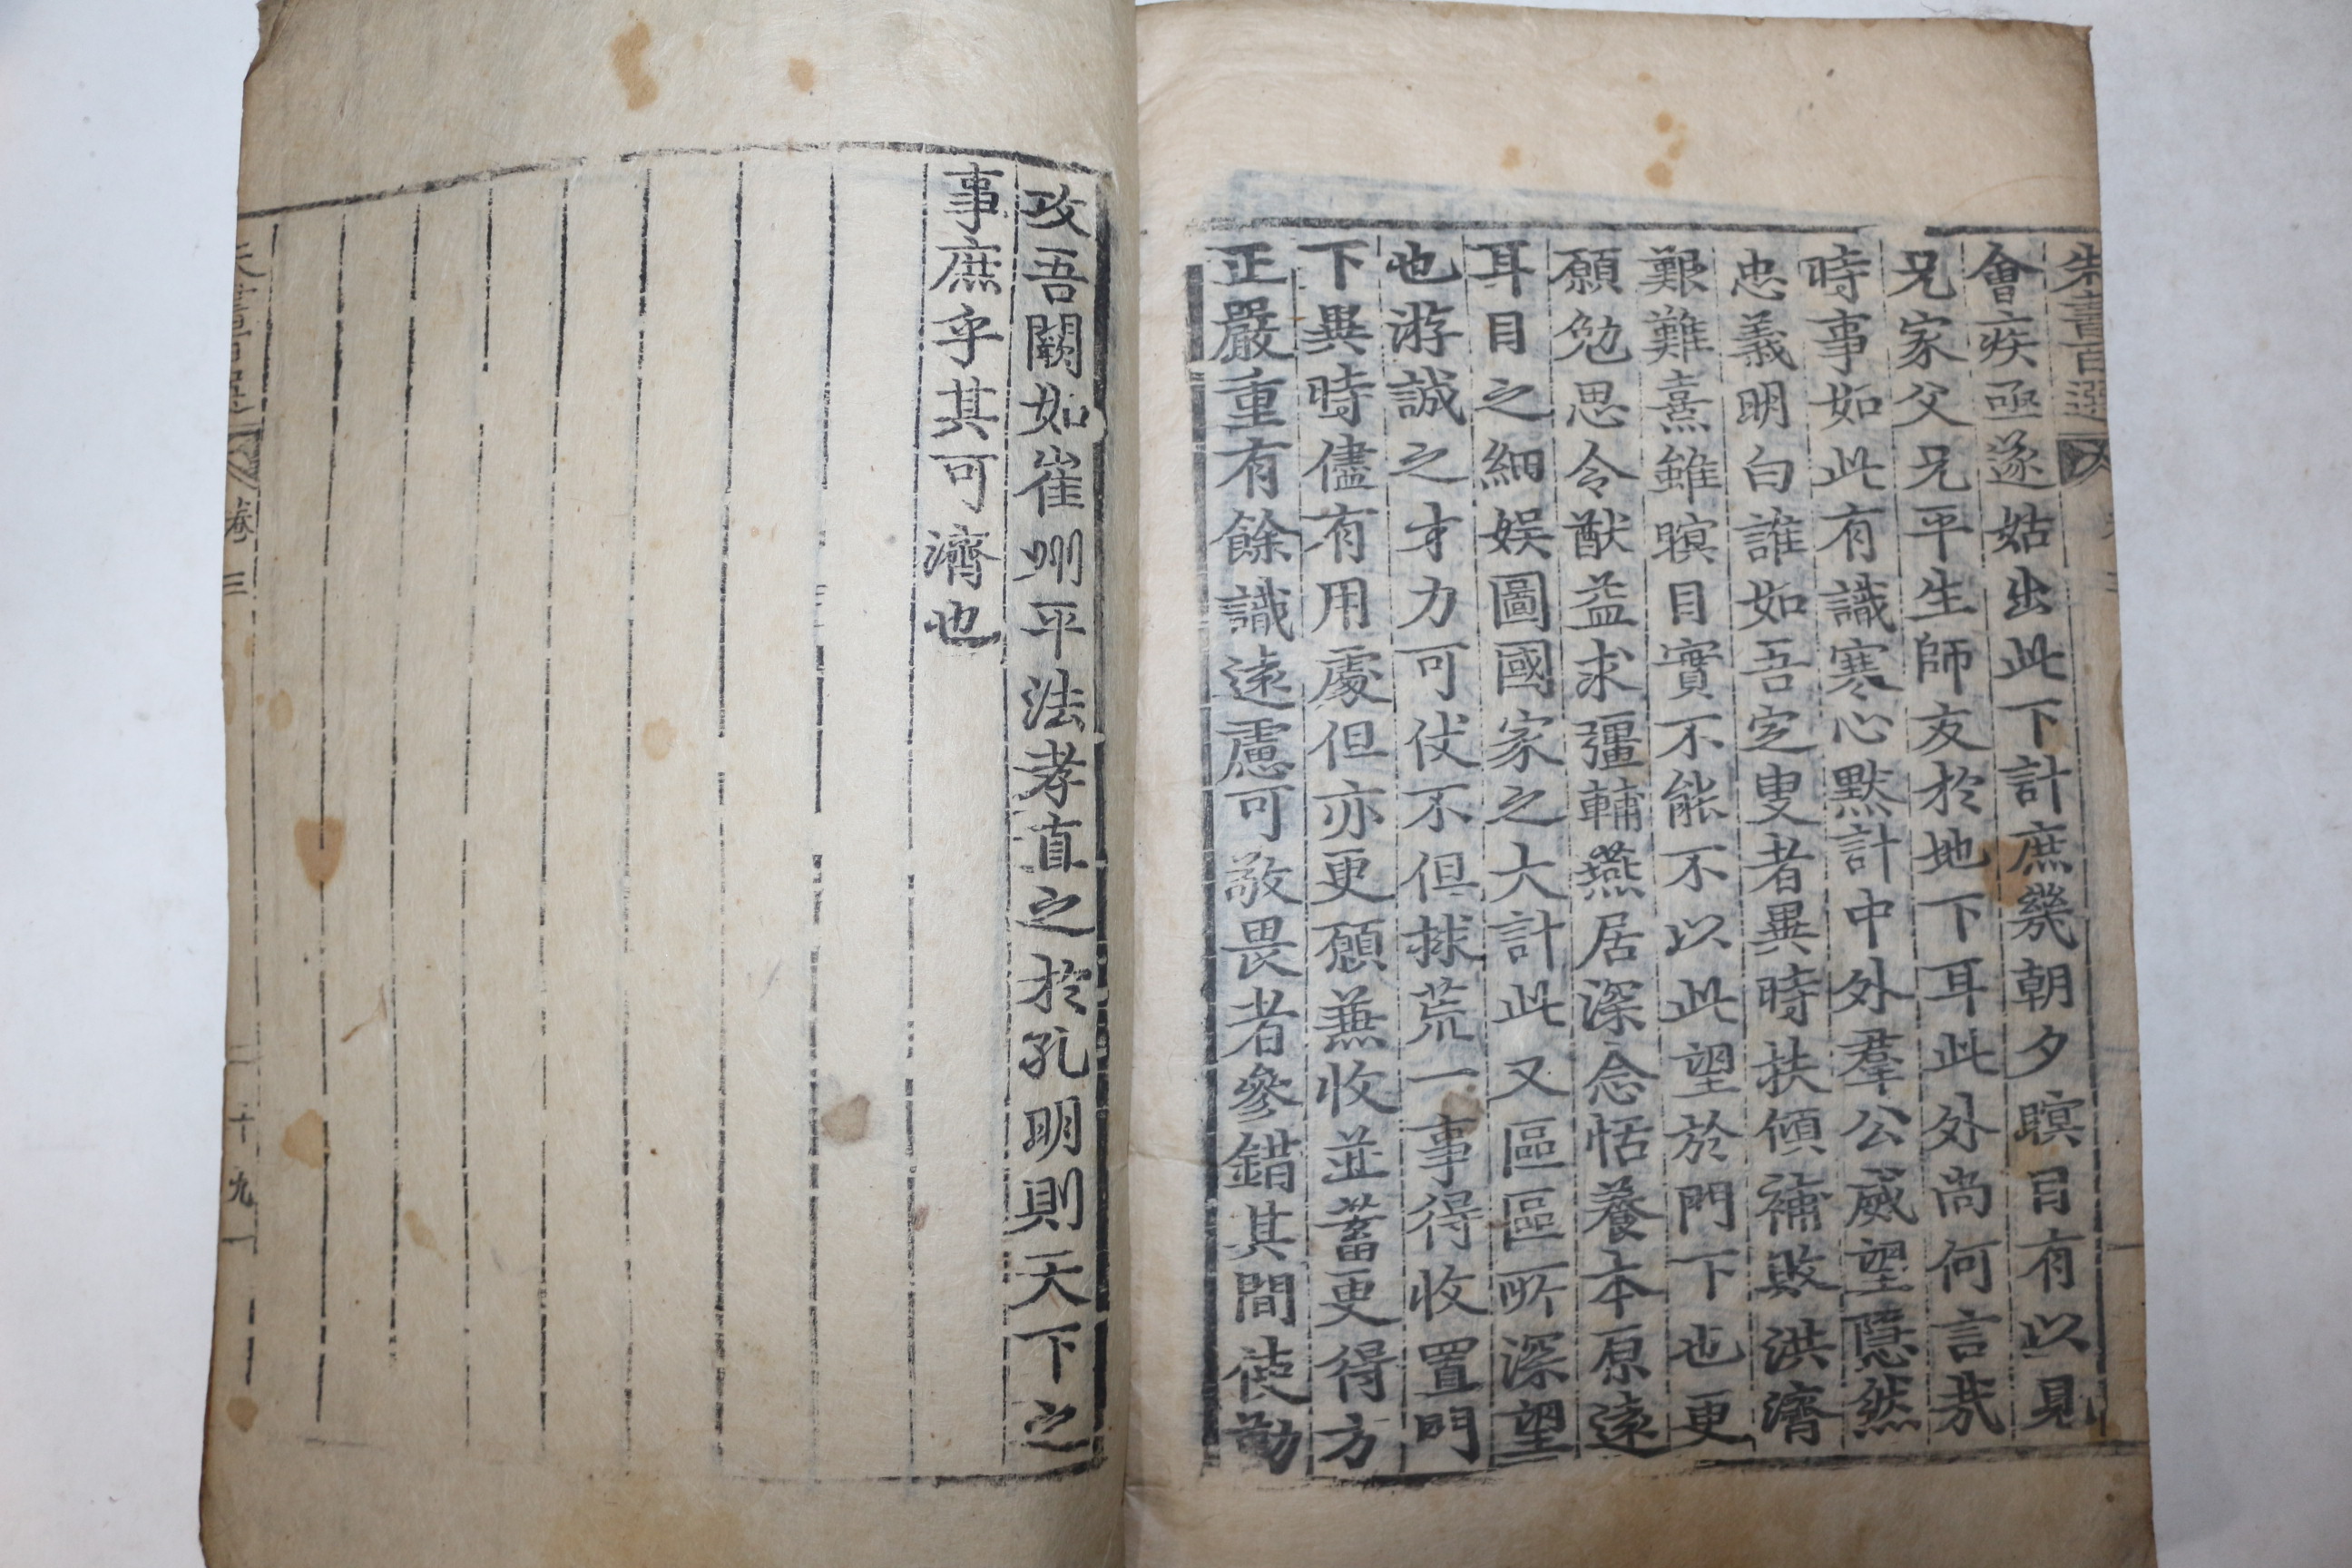 朱書百選
會疾亟遂姑出此下計庶幾朝夕瞑目有以見
兄家父兄平生師友於地下耳此外尚何言哉
時事如此有識寒心默計中外羣公威望隱然
忠義明白誰如吾定叟者異時扶傾補敗洪濟
艱難熹雖瞑目實不能不以此望於門下也更
願勉思令猷益求彊輔燕居深念恬養本原遠
耳目之細娛圖國家之大計此又區區所深望
也游誠之才力可仗不但捄荒一事得收置門
下異時儘有用處但亦更願兼收並蓄更得方
正嚴重有餘識遠慮可敬畏者參錯其間使勤
攻吾闕如崔州平法孝直之於孔明則天下之
事庶乎其可濟也
朱書百選
卷三
二十九